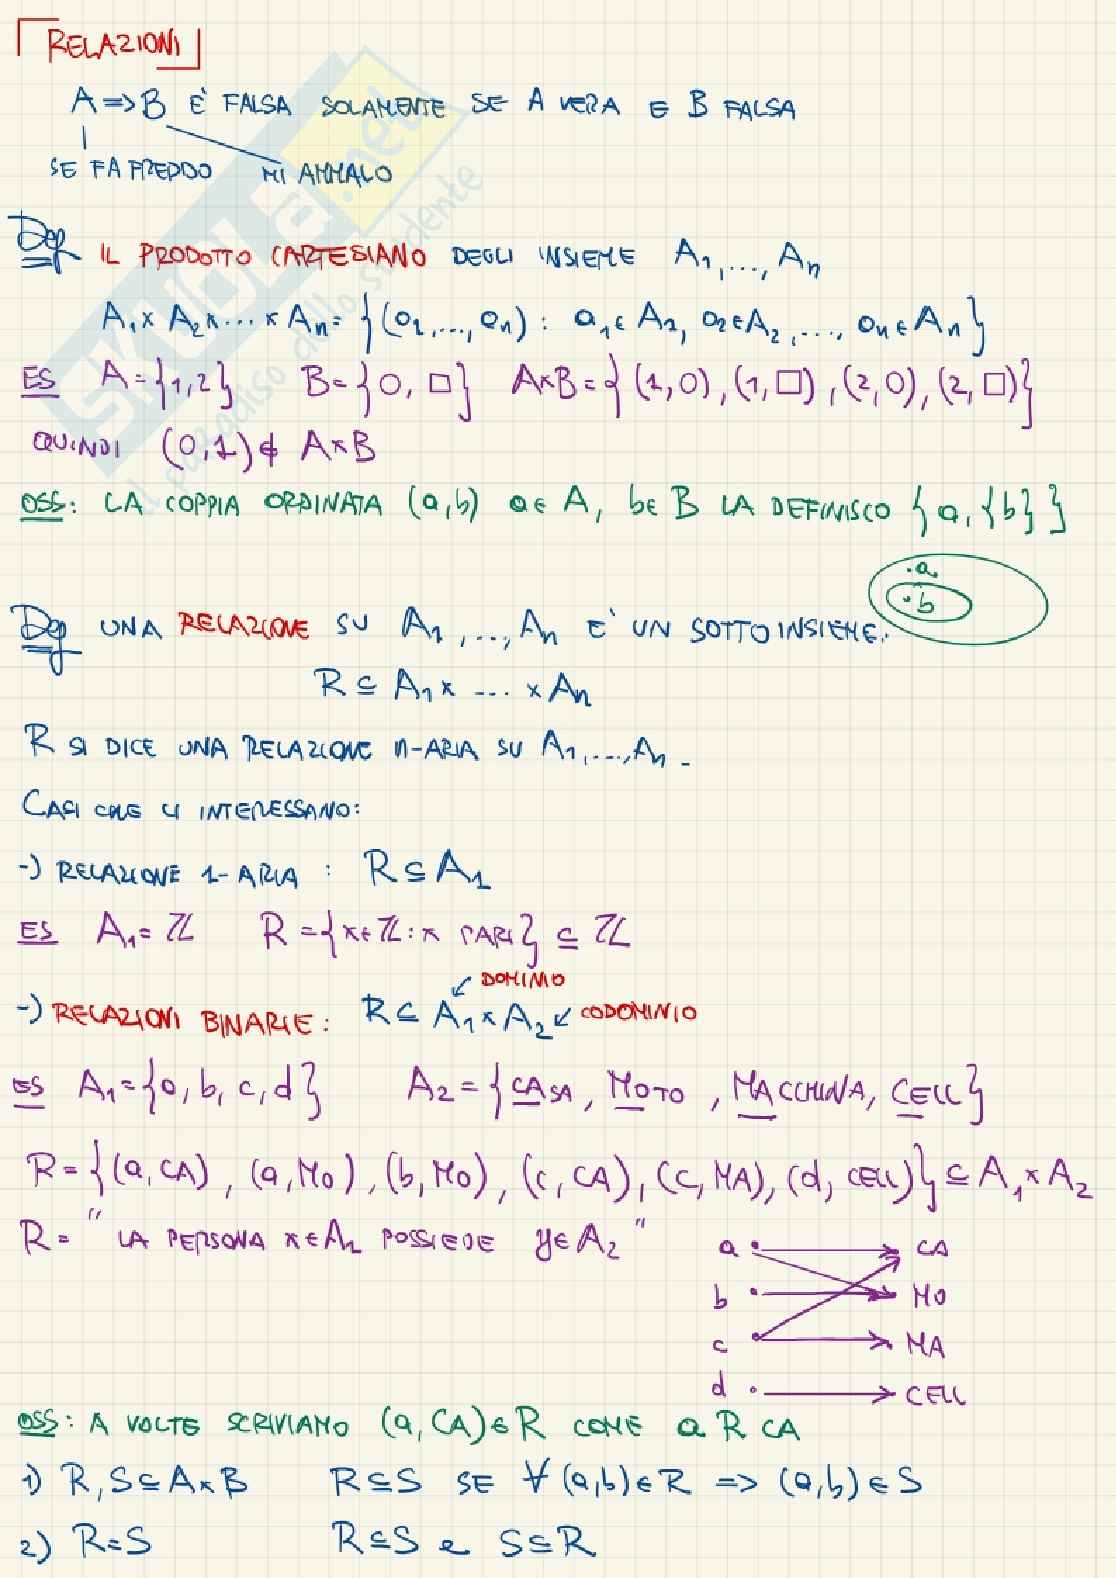 RELAZIONI
A => B E' FALSA SOLAMENTE SE A VERA E B FALSA
SE FA FREDDO MI AMMALO
Def IL PRODOTTO CARTESIANO DEGLI INSIEME A₁,..., Aₙ
A₁ x A₂ x ... x Aₙ = {(a₁,..., aₙ) : a₁ ∈ A₁, a₂ ∈ A₂, ..., aₙ ∈ Aₙ}
ES A = {1,2} B = {0, □} A×B = {(1,0), (1,□), (2,0), (2,□)}
QUINDI (0,1) ∉ A×B
OSS: LA COPPIA ORDINATA (a,b) a ∈ A, b ∈ B LA DEFINISCO {a, {b}}
·a
·b
Def UNA RELAZIONE SU A₁, ..., Aₙ E' UN SOTTOINSIEME.
R ⊆ A₁ x ... x Aₙ
R SI DICE UNA RELAZIONE n-ARIA SU A₁,..., Aₙ.
CASI CHE CI INTERESSANO:
-) RELAZIONE 1-ARIA : R ⊆ A₁
ES A₁ = ℤ R = {x ∈ ℤ : x PARI} ⊆ ℤ
DOMINIO
-) RELAZIONI BINARIE: R ⊆ A₁ x A₂ CODOMINIO
ES A₁ = {a, b, c, d} A₂ = {CASA, MOTO, MACCHINA, CELL}
R = {(a, CA), (a, MO), (b, MO), (c, CA), (c, MA), (d, CELL)} ⊆ A₁ x A₂
R = " LA PERSONA x ∈ A₁ POSSIEDE y ∈ A₂ "
a CA
b MO
c MA
d CELL
OSS: A VOLTE SCRIVIAMO (a, CA) ∈ R COME a R CA
1) R, S ⊆ A x B R ⊆ S SE ∀ (a,b) ∈ R => (a,b) ∈ S
2) R = S R ⊆ S e S ⊆ R
SKUOLA.net
il paradiso dello studente